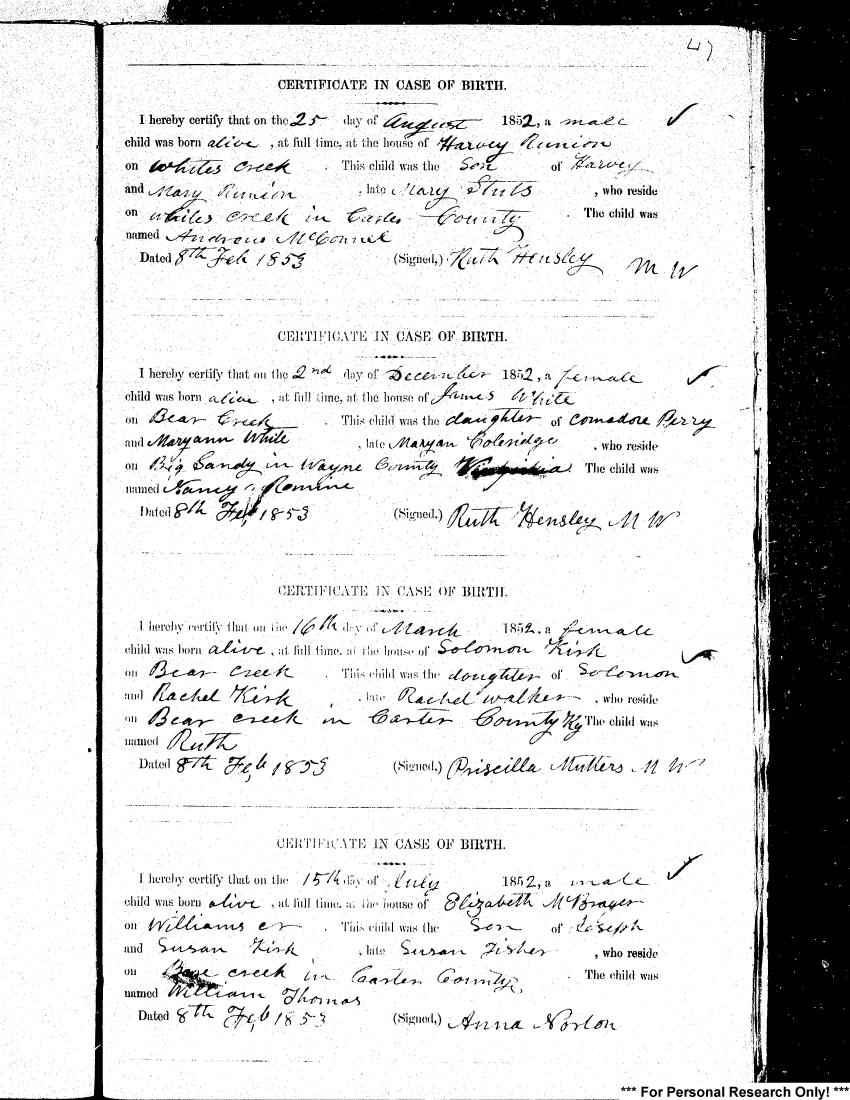 47
CERTIFICATE IN CASE OF BIRTH.
I hereby certify that on the 25 day of August 1852, a male
child was born alive , at full time, at the house of Harvey Runion
on Whites Creek . This child was the Son of Harvey
and Mary Runion , late Mary Stuts , who reside
on whites creek in Carter County . The child was
named Andrew McConnel
Dated 8th Feb 1853 (Signed,) Ruth Hensley M W
CERTIFICATE IN CASE OF BIRTH.
I hereby certify that on the 2nd day of December 1852, a female
child was born alive , at full time, at the house of James White
on Bear Creek . This child was the daughter of Comadore Perry
and Maryann White , late Maryan Coleridge , who reside
on Big Sandy in Wayne County Virginia The child was
named Nancy Romine
Dated 8th Feb 1853 (Signed,) Ruth Hensley M W
CERTIFICATE IN CASE OF BIRTH.
I hereby certify that on the 16th day of March 1852, a female
child was born alive , at full time, at the house of Solomon Kirk
on Bear creek . This child was the doughter of Solomon
and Rachel Kirk , late Rachel walker , who reside
on Bear creek in Carter County Ky The child was
named Ruth
Dated 8th Feb 1853 (Signed,) Priscilla Mullers M W
CERTIFICATE IN CASE OF BIRTH.
I hereby certify that on the 15th day of July 1852, a male
child was born alive , at full time, at the house of Elizabeth McBrayer
on Williams cr . This child was the Son of Joseph
and Susan Kirk , late Susan Fisher , who reside
on creek in Carter County . The child was
named William Thomas
Dated 8th Feb 1853 (Signed,) Anna Norton
*** For Personal Research Only! ***